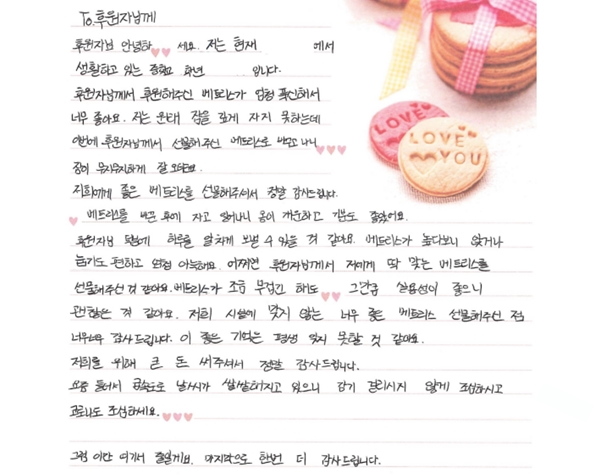 To.후원자님께
후원자님 안녕하세요. 저는 현재 에서
생활하고 있는 중학교 학년 입니다.
후원자님께서 후원해주신 메트리스가 엄청 푹신해서
너무 좋아요. 저는 원래 잠을 깊게 자지 못하는데
이번에 후원자님께서 선물해주신 메트리스로 바꾸고 나니
잠이 무지무지하게 잘 오더라.
저희에게 좋은 메트리스를 선물해주셔서 정말 감사드립니다.
메트리스를 바꾼 후에 자고 일어나니 몸이 개운하고 기분도 좋았어요.
후원자님 덕분에 하루를 알차게 보낼 수 있을 것 같아요. 메트리스가 높다보니 앉거나
눕기도 편하고 엄청 아늑해요. 어쩌면 후원자님께서 저에게 딱 맞는 메트리스를
선물해주신 것 같아요. 메트리스가 조금 무겁긴 해도 그만큼 실용성이 좋으니
괜찮은 것 같아요. 저희 시설에 맞지 않는 너무 좋은 메트리스 선물해주신 점
너무너무 감사드립니다. 이 좋은 기억은 평생 잊지 못할 것 같아요.
저희를 위해 큰 돈 써주셔서 정말 감사드립니다.
요즘 들어서 급속도로 날씨가 쌀쌀해지고 있으니 감기 걸리시지 않게 조심하시고
코로나도 조심하세요.
그럼 이만 여기서 줄일게요. 마지막으로 한번 더 감사드립니다.
LOVE
LOVE
YOU